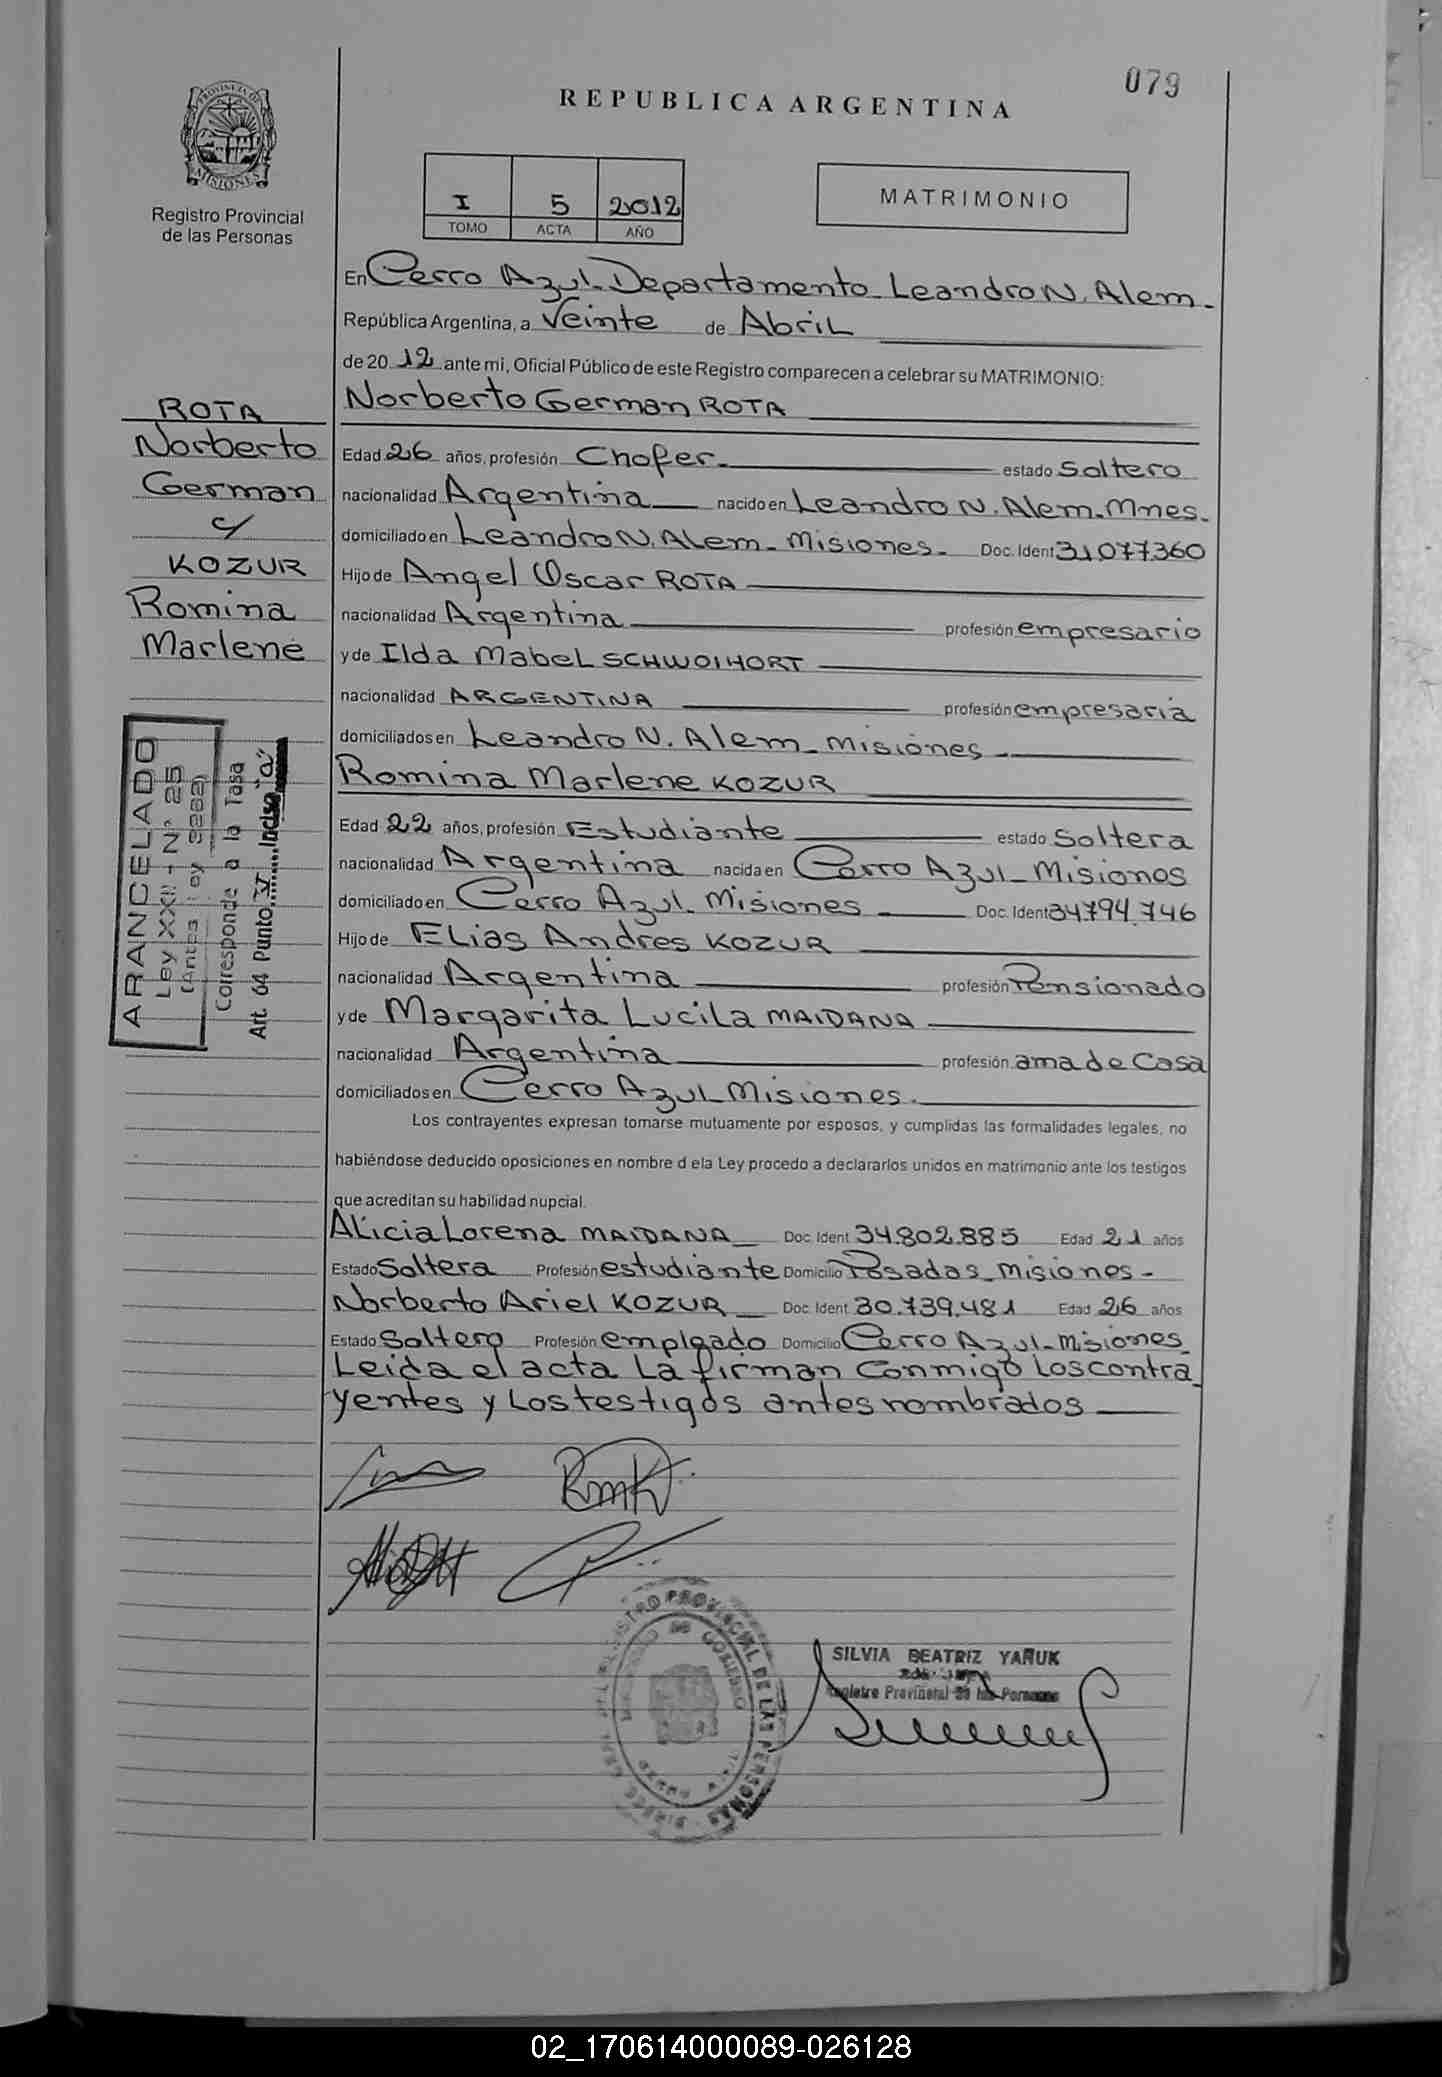 079
PROVINCIA DE
MISIONES
Registro Provincial
de las Personas
REPUBLICA ARGENTINA
I 5 2012
TOMO ACTA AÑO
MATRIMONIO
En Cerro Azul. Departamento Leandro N. Alem.
República Argentina, a Veinte de Abril
de 20 12 ante mi, Oficial Público de este Registro comparecen a celebrar su MATRIMONIO:
Norberto German ROTA
Edad 26 años, profesión Chofer. estado Soltero
nacionalidad Argentina nacido en Leandro N. Alem. Mnes.
domiciliado en Leandro N. Alem - Misiones. Doc. Ident 31.077.360
Hijo de Angel Oscar ROTA
nacionalidad Argentina profesión empresario
y de Ilda Mabel SCHWOIHORT
nacionalidad ARGENTINA profesión empresaria
domiciliados en Leandro N. Alem - Misiones
Romina Marlene KOZUR
Edad 22 años, profesión Estudiante estado Soltera
nacionalidad Argentina nacida en Cerro Azul - Misiones
domiciliado en Cerro Azul. Misiones Doc. Ident 34794.746
Hijo de Elias Andres KOZUR
nacionalidad Argentina profesión Pensionado
y de Margarita Lucila MAIDANA
nacionalidad Argentina profesión ama de Casa
domiciliados en Cerro Azul Misiones.
Los contrayentes expresan tomarse mutuamente por esposos, y cumplidas las formalidades legales, no
habiéndose deducido oposiciones en nombre d ela Ley procedo a declararlos unidos en matrimonio ante los testigos
que acreditan su habilidad nupcial.
Alicia Lorena MAIDANA Doc. Ident 34.802.885 Edad 21 años
Estado Soltera Profesión estudiante Domicilio Posadas - Misiones -
Norberto Ariel KOZUR Doc. Ident 30.739.481 Edad 26 años
Estado Soltero Profesión emplgado Domicilio Cerro Azul - Misiones
Leida el acta la firman conmigo los contra
yentes y los testigos antes nombrados
ROTA
Norberto
German
c/
KOZUR
Romina
Marlene
ARANCELADO
Ley XXII - N° 25
(Antes Ley 3282)
Corresponde a la Tasa
Art. 64 Punto V Inciso "a"
REGISTRO PROVINCIAL DE LAS PERSONAS
DE GOBIERNO
SILVIA BEATRIZ YAÑUK
Registro Provincial de las Personas
02_170614000089-026128